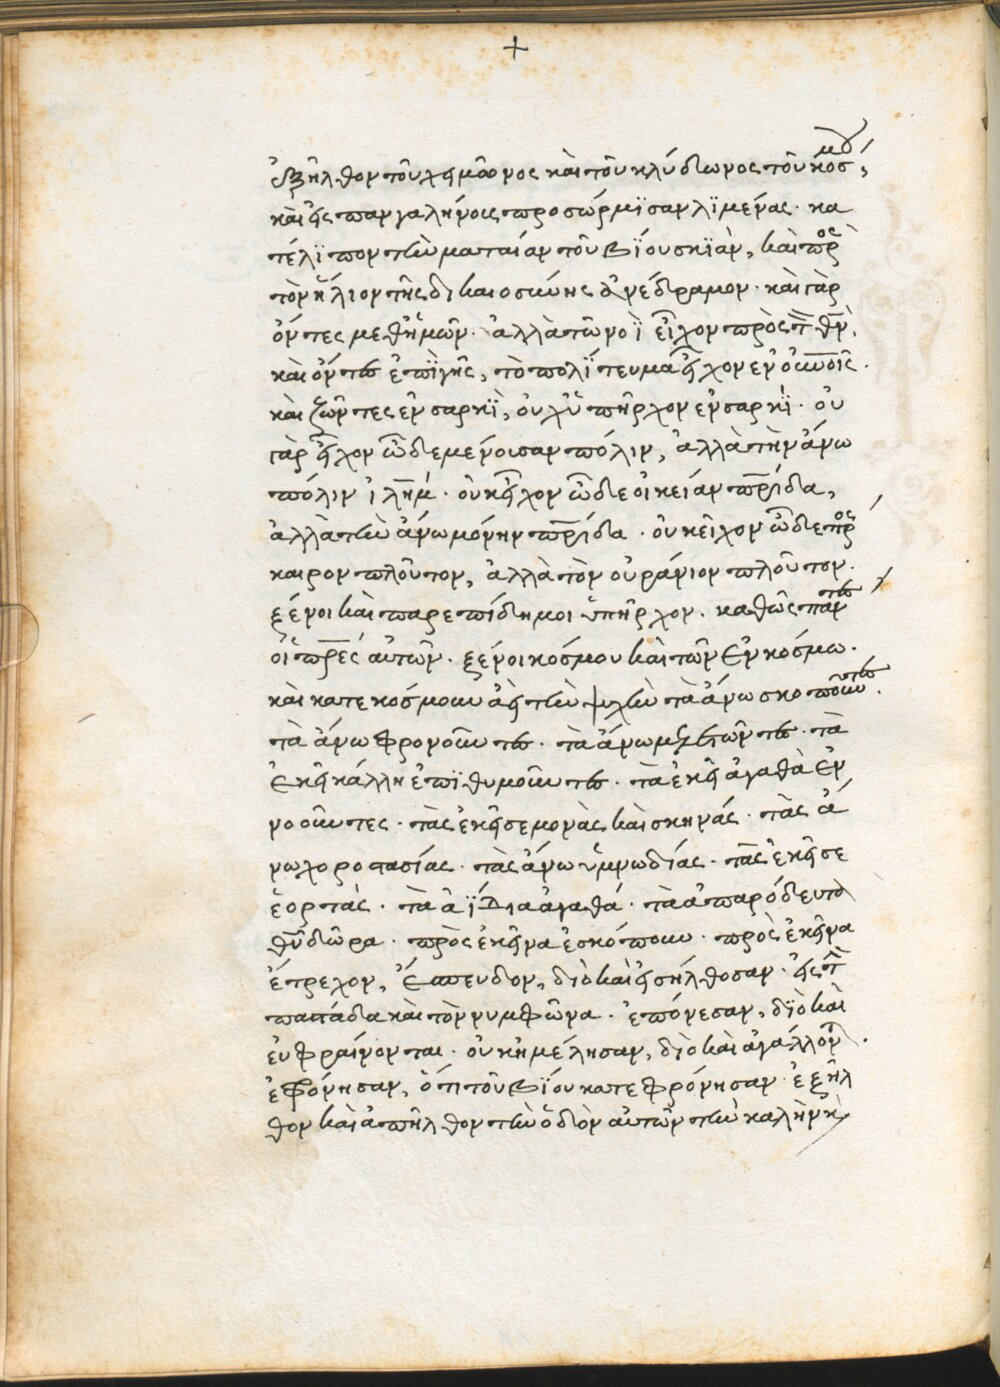 +
ἐξῆλθον τοῦ χειμῶονος καὶ τοῦ κλύδωνος τοῦ κόσμου,
καὶ εἰς πανγαλήνοις προσώρμϊσαν λϊμένας· κα
τέλϊπον τὴν ματαίαν τοῦ βϊου σκϊαν, καὶ πρὸς
τὸν ἥλιον τῆς δικαιοσύνης ἀνέδραμον· καὶ γὰρ
ὄντες μεθ' ἡμῶν· ἀλλὰ τῶ νοῒ εἶχον πρὸς τὸν θν̅,
καὶ ὄντες ἐπῒ γῆς, τὸ πολίτευμα εἶχον εν οὐνοῖς·
καὶ ζῶντες εν σαρκῒ, οὐχ ὑπῆρχον εν σαρκῒ· οὐ
γὰρ εἶχον ὧδε μένουσαν πόλιν, ἀλλὰ τὴν ἄνω
πόλιν ἱλημ· οὐκ εἶχον ὧδε οἰκείαν πρίδα,
ἀλλὰ τὴν ἄνω μόνην πρίδα· οὐκ εἶχον ὧδε πρὸς
καιρον πλοῦτον, ἀλλὰ τὸν οὐράνιον πλοῦτον·
ξένοι καὶ παρεπίδημοι ὑπῆρχον· καθὼς πάντες
οἱ πρες αὐτῶν· ξένοι κόσμου καὶ τῶν ἐν κόσμω·
καὶ κατεκόσμουν ἀεὶ τὴν ψυχὴν τὰ ἄνω σκοποῦντες·
τὰ ἄνω φρονοῦντες· τὰ ἄνω μελετῶντες· τὰ
ἐκεῖ κάλλη ἐπϊθυμοῦντες· τὰ ἐκεῖ ἀγαθὰ ἐν
νοοῦντες· τὰς ἐκεῖσε μονὰς καὶ σκηνάς· τὰς ἄ
νω χοροστασίας· τὰς ἄνω ὑμνωδίας· τὰς ἐκεῖσε
ἑορτὰς· τὰ ἀΐδια ἀγαθά· τὰ ἀπαρόδευτα
θῦ δῶρα· πρὸς ἐκεῖνα ἐσκόπουν· πρὸς ἐκεῖνα
ἔτρεχον, ἔσπευδον, διὸ καὶ εἰσήλθοσαν· εἰς τὴν
παστάδα καὶ τὸν νυμφῶνα· ἐπόνεσαν, δϊὸ καὶ
εὐφραίνονται· οὐκ ἠμέλησαν, διὸ καὶ ἀγάλλονται·
ἐφρόνησαν, ὅτι τοῦ βΐου κατεφρόνησαν· ἐξῆλ
θον καὶ ἀπῆλθον τὴν ὁδὸν αὐτῶν τὴν καλὴν καὶ